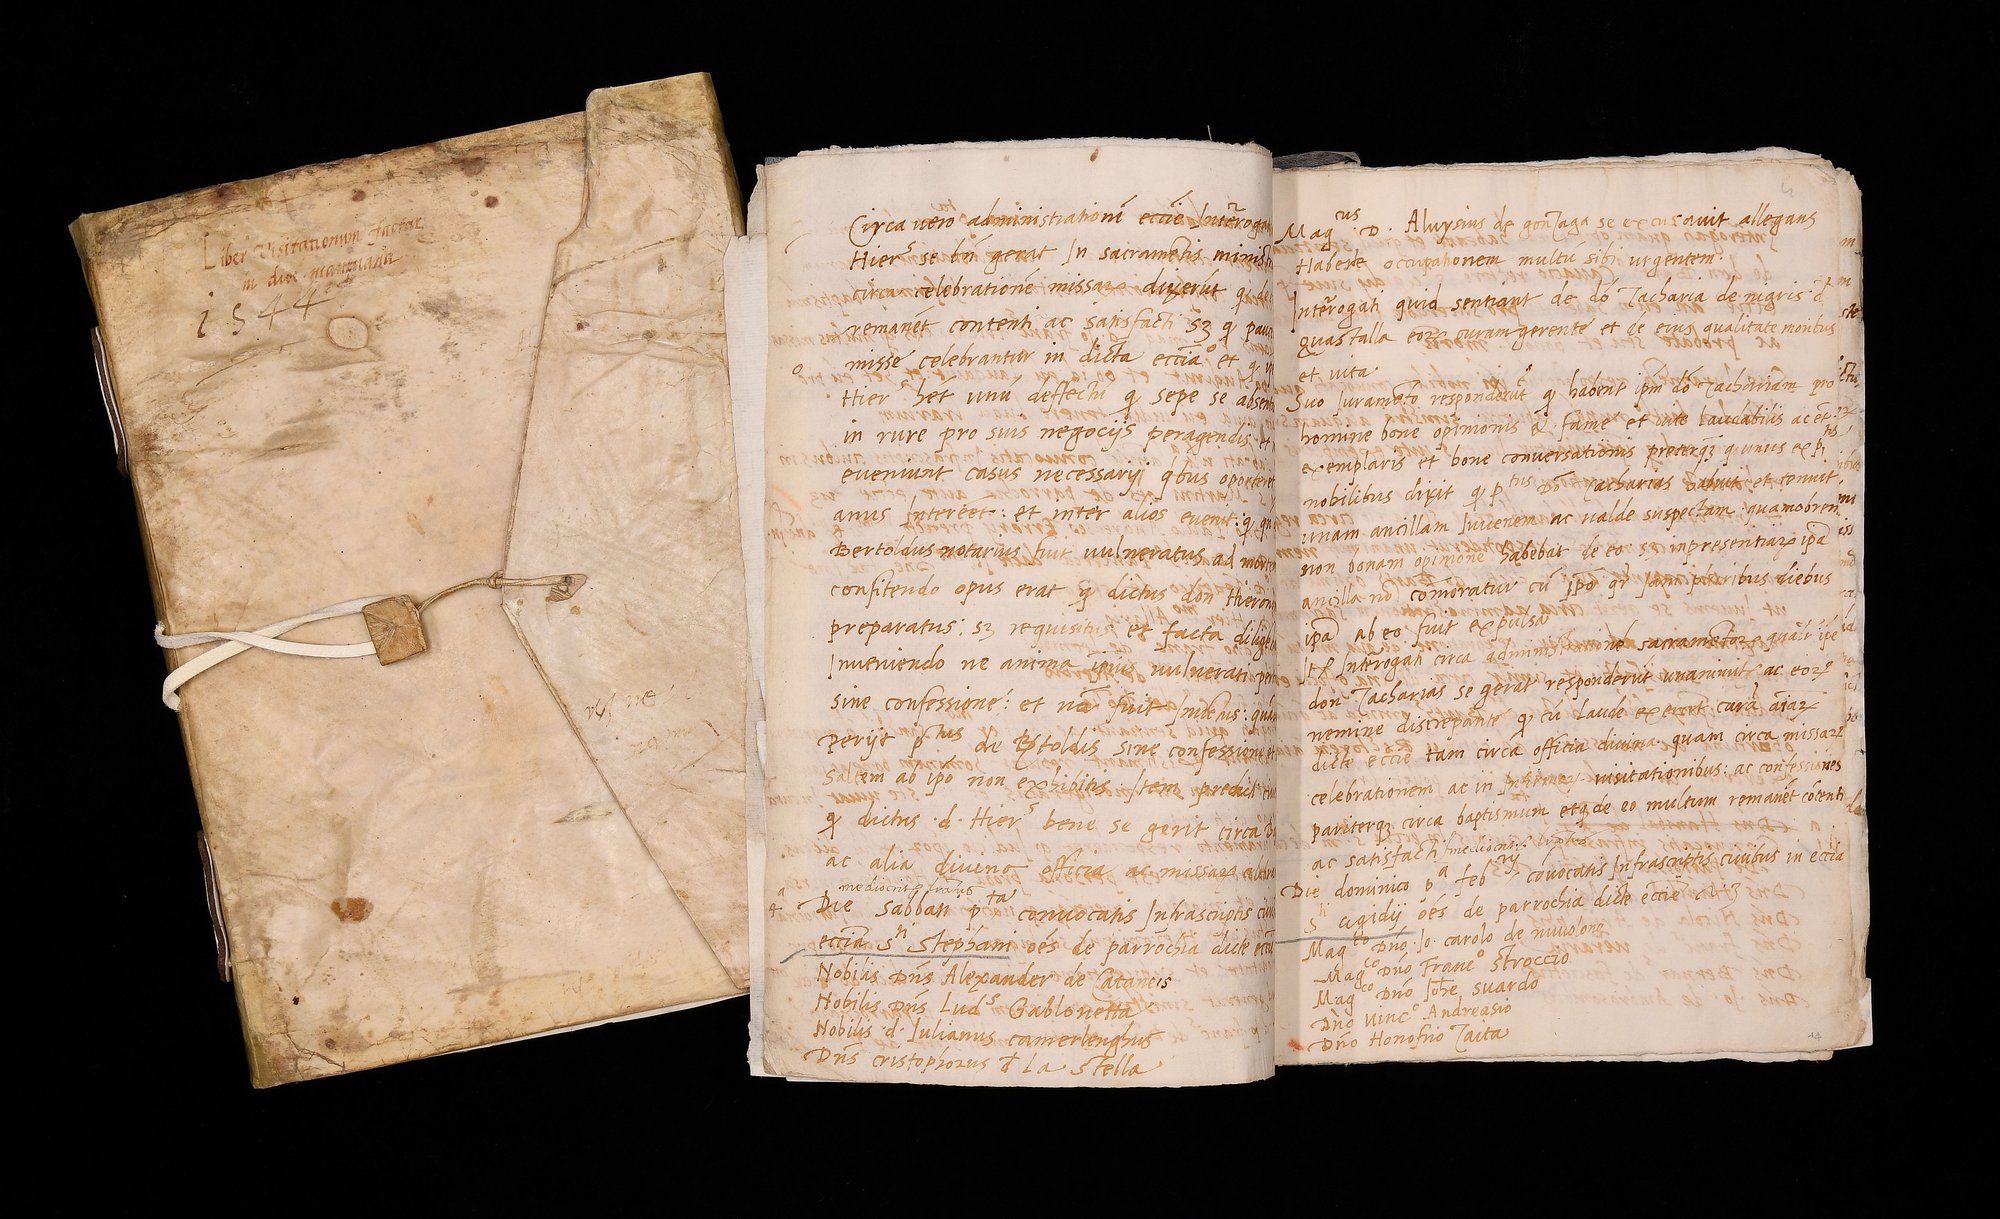 Liber Visitationum factar
in dioc. mantuana
1544
Circa vero administrationē ecciē Interoga
Hiers se benē gerat In sacramentis minist
circa celebrationē missar dixerūt q de
remanēt contenti ac satisfacti sz q pauc
misse celebrantur in dicta eccia et q
Hiers het unū deffectū q sepe se absent
in rure pro suis negocijs peragendis et
eveniunt casus necessarij qbus oporteret
anus Intereet: et inter alios evenit q
Bertoldus notarius fuit vulneratus ad mort
confitendo opus erat q dictus don Hieron
preparatus: sz requisitus et facta dilige
Inveniendo ne anima ipius vulnerati per
sine confessione: et nō fuit Invētus:
perijt ptus de Bstoldis sine confessione
saltem ab ipo non exhibita Item predicti
q dictus d. Hiers bene se gerit circa
ac alia divina officia ac missar celebra
mediocriter fratus
Die sabbati pta convocatis Infrascriptis civi
ecciā Sti Stephani oēs de parrochia dicte eccie
Nobilis Dns Alexander de Cataneis
Nobilis Dns Luds Gablonetta
Nobilis d. Julianus camerlenghus
Dns cristophorus d La Stella
Magcus D. Aluysius de gonzaga se excusavit allegans
Habere occupationem multū sibi urgentem
Interogati quid sentiant de dō Zacharia de nigris d
Quastalla eor curam gerente et de eius qualitate moribus
et vita
Suo Juramēto responderūt q habent ipm dō Zachariam pro
homine bone opinionis & fame et vite laudabilis ac et
exemplaris et bone conversationis preterqz q unus ex ptis
nobilibus dixit q ptus Dō Zacharias habuit et tenuit
unam ancillam Iuvenem ac valde suspectam quamobrem
non bonam opinionē habebat de eo sz inpresentiar ipa
ancilla nō comoratur cū ipo qr Jam pluribus diebus
ipa ab eo fuit expulsa
Itē Interogati circa administrationē sacramētor qualr ipe
don Zacharias se gerat responderūt unanimiter ac eor
nemine discrepante q cū laude exercet curā aiar
dicte eccie tam circa officia divina quam circa missar
celebrationem ac in Infirmor visitationibus: ac confessiones
pariterqz circa baptismum etq de eo multum remanēt cōtenti
ac satisfacti
Die dominico pa febry covocatis Infrascriptis civibus in eccia
Sti Egidij oēs de parrochia dicte eccie
Magco Dno Jo. carolo de nuvolono
Magco Dno Franco Stroccio
Magco Dno Jōe suardo
Dno Vinco Andreasio
Dno Honofrio Zaita